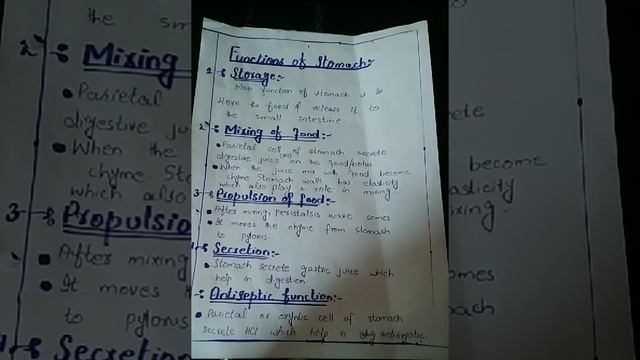 Functions of Stomach:-
1 -: Storage:-
Main function of stomach is to
store the food & release it to
the small intestine.
2 -: Mixing of food:-
• Parietal cell of stomach secrete
digestive juice (HCl) on the food/bolus
• When the juice mix with food become
chyme. Stomach wall has elasticity
which also play a role in mixing.
3 -: Propulsion of food:-
After mixing, peristalsis wave comes
• It moves the chyme from stomach
to pylorus.
-: Secretion:-
• Stomach secrete gastric juice which
help in digestion
-: Antiseptic function:-
• Parietal or oxyntic cell of stomach
secrete HCl which help in antiseptic.
the small
2 -: Mixing
• Parietal
digestive ju
• When the
chyme. Sto
which also
3 -: Propulsion
After mixing
• It moves
to pylorus
-: Secretion
become
elasticity
mixing.
omes
mach